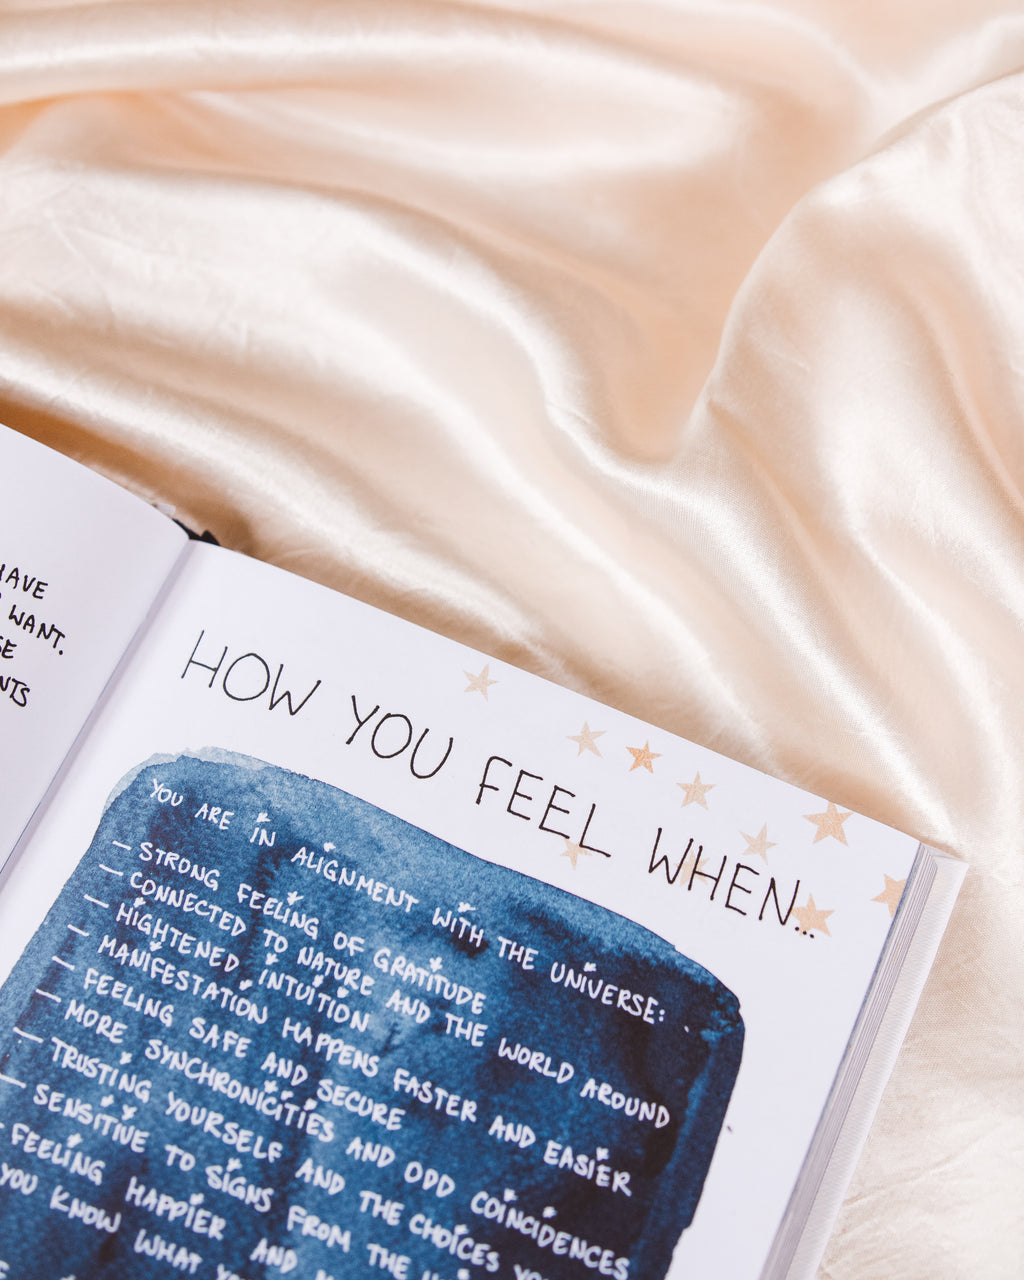 HAVE
WANT.
HOW YOU FEEL WHEN...
YOU ARE IN ALIGNMENT WITH THE UNIVERSE:
— STRONG FEELING OF GRATITUDE
— CONNECTED TO NATURE AND THE WORLD AROUND
— HIGHTENED INTUITION
— MANIFESTATION HAPPENS FASTER AND EASIER
— FEELING SAFE AND SECURE
— MORE SYNCHRONICITIES AND ODD COINCIDENCES
— TRUSTING YOURSELF AND THE CHOICES
— SENSITIVE TO SIGNS FROM THE
— FEELING HAPPIER AND
YOU KNOW WHAT